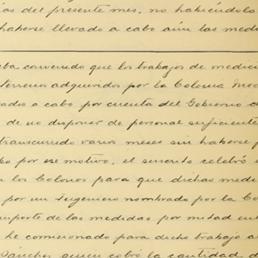 ías del presente mes, no habiéndola
haberse llevado a cabo aún las medi
ba convenido que los trabajos de medici
terreno adquiridos por la Colonia Mor
ados a cabo por cuenta del Gobierno
de no disponer de personal suficiente
transcurrido varios meses sin haberse
ko por ese motivo, el suscrito celebró
los Colonos para que dichas medi
por un Ingeniero nombrado por la Co
importe de las medidas por mitad ent
he comisionado para dicho trabajo a
Sánchez quien cobró la cantidad d